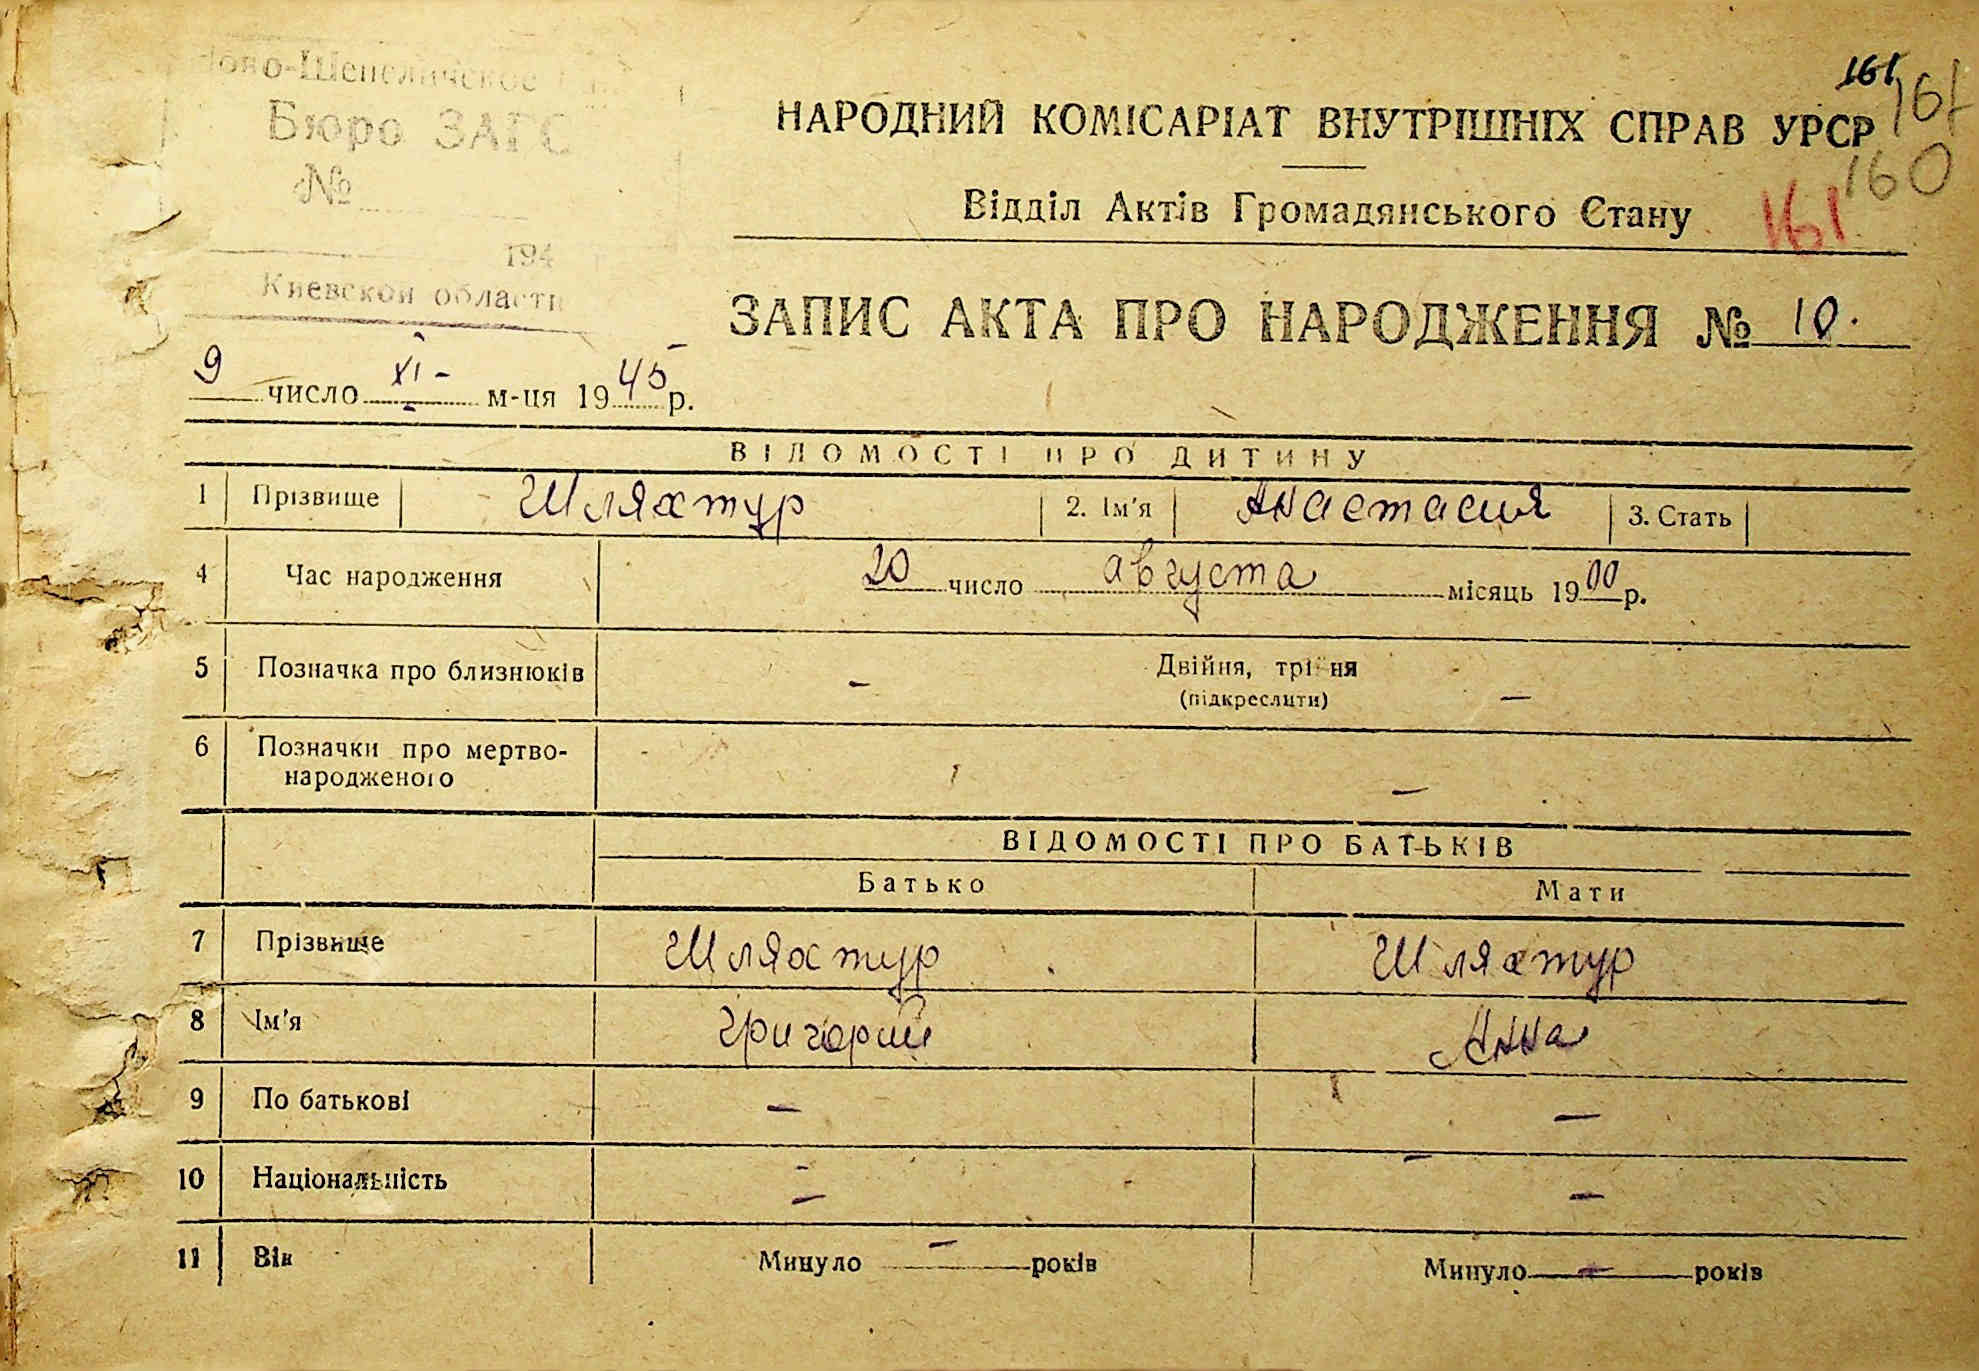 Ново-Шепеличское
Бюро ЗАГС
№
194
Киевской области
161
161
160
161
НАРОДНИЙ КОМІСАРІАТ ВНУТРІШНІХ СПРАВ УРСР
Відділ Актів Громадянського Стану
ЗАПИС АКТА ПРО НАРОДЖЕННЯ № 10.
9 число XI - м-ця 1945 р.
ВІДОМОСТІ ПРО ДИТИНУ
1 Прізвище Шляхтур 2. Ім'я Анастасия 3. Стать
4 Час народження 20 число августа місяць 1900 р.
5 Позначка про близнюків - Двійня, трійня -
(підкреслити)
6 Позначки про мертво-
народженого -
ВІДОМОСТІ ПРО БАТЬКІВ
Батько Мати
7 Прізвище Шляхтур Шляхтур
8 Ім'я Григорий Анна
9 По батькові - -
10 Національність - -
11 Вік Минуло - років Минуло - років